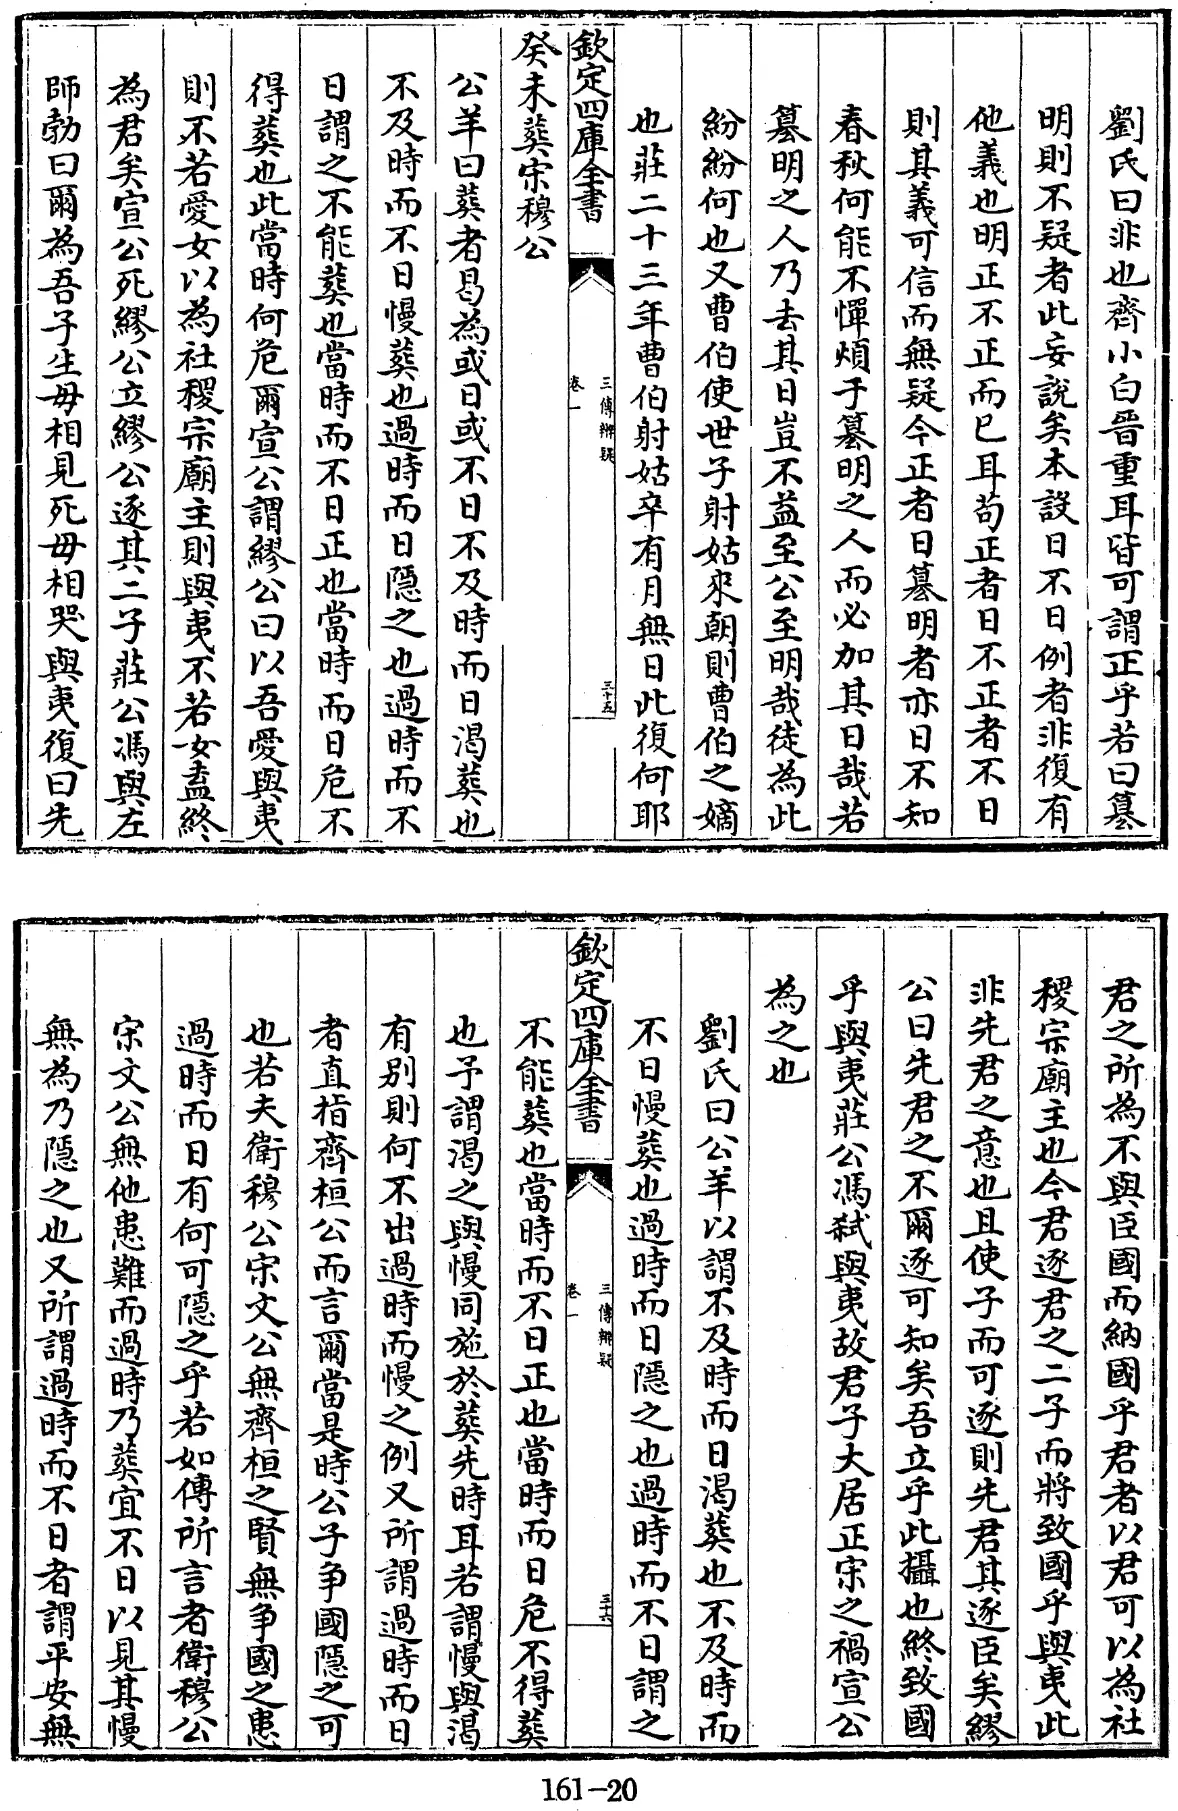 劉氏曰非也齊小白晉重耳皆可謂正乎若曰簒
明則不疑者此妄說矣本設日不日例者非復有
他義也明正不正而已耳苟正者日不正者不日
則其義可信而無疑今正者日簒明者亦日不知
春秋何能不憚煩于簒明之人而必加其日哉若
簒明之人乃去其日豈不益至公至明哉徒為此
紛紛何也又曹伯使世子射姑來朝則曹伯之嫡
也莊二十三年曹伯射姑卒有月無日此復何耶
欽定四庫全書
三傳辨疑
卷一
三十五
癸未葬宋穆公
公羊曰葬者曷為或日或不日不及時而日渴葬也
不及時而不日慢葬也過時而日隱之也過時而不
日謂之不能葬也當時而不日正也當時而日危不
得葬也此當時何危爾宣公謂繆公曰以吾愛與夷
則不若愛女以為社稷宗廟主則與夷不若女盍終
為君矣宣公死繆公立繆公逐其二子莊公馮與左
師勃曰爾為吾子生毋相見死毋相哭與夷復曰先
君之所為不與臣國而納國乎君者以君可以為社
稷宗廟主也今君逐君之二子而將致國乎與夷此
非先君之意也且使子而可逐則先君其逐臣矣繆
公曰先君之不爾逐可知矣吾立乎此攝也終致國
乎與夷莊公馮弑與夷故君子大居正宋之禍宣公
為之也
劉氏曰公羊以謂不及時而日渴葬也不及時而
不日慢葬也過時而日隱之也過時而不日謂之
欽定四庫全書
三傳辨疑
卷一
三十六
不能葬也當時而不日正也當時而日危不得葬
也予謂渴之與慢同施於葬先時耳若謂慢與渴
有别則何不出過時而慢之例又所謂過時而日
者直指齊桓公而言爾當是時公子争國隱之可
也若夫衛穆公宋文公無齊桓之賢無争國之患
過時而日有何可隱之乎若如傳所言者衛穆公
宋文公無他患難而過時乃葬宜不日以見其慢
無為乃隱之也又所謂過時而不日者謂平安無
161-20